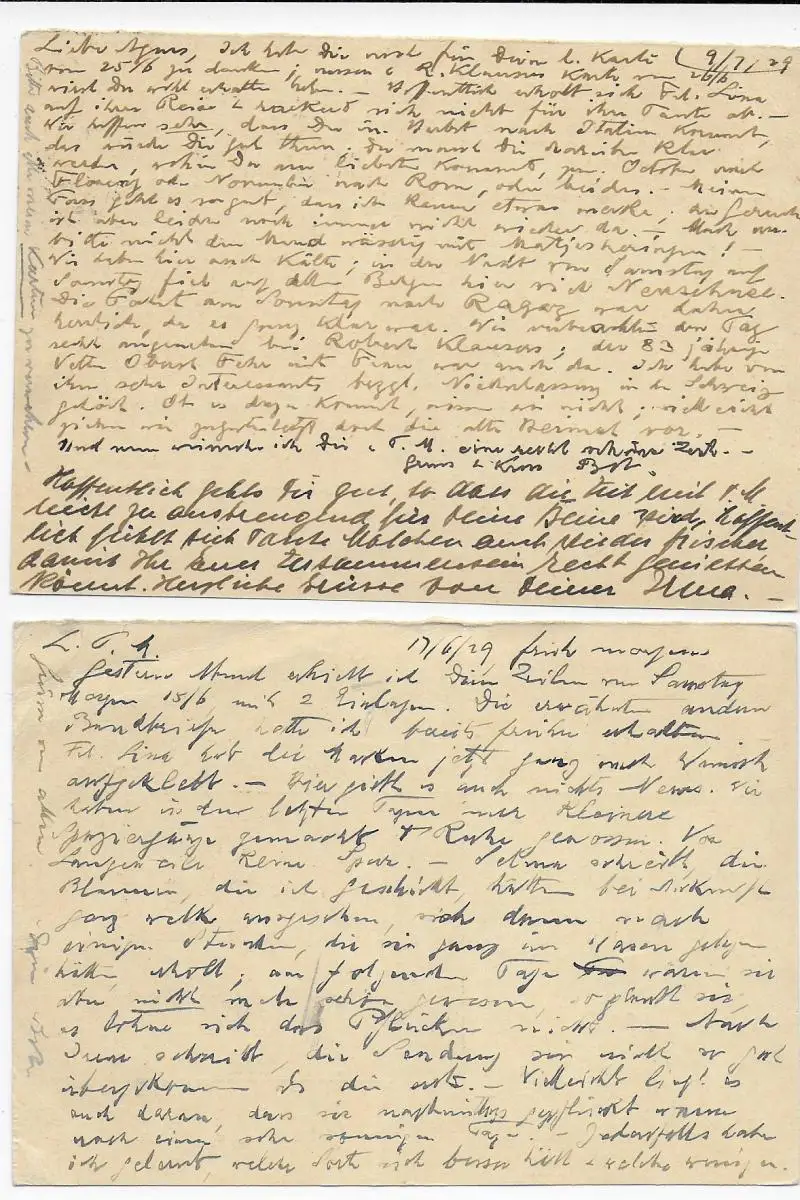 Liebe Agnes, Ich habe Dir noch für Deine l. Karte (9/7/29
vom 25/6 zu danken; unsere & R. Klausers Karte vom 26/6
wirst Du wohl erhalten haben. – Hoffentlich erholt sich Frl. Lina
auf ihrer Reise & rackert sich nicht für ihre Tante ab. –
Wir hoffen sehr, dass Du im Herbst nach Italien kommst,
das würde Dir gut thun. Du musst Dir darüber klar
werden, wohin Du am liebsten kommst, Oktober nach
Florenz oder November nach Rom, oder beides. – Meinem
Fuss geht es so gut, dass ich kaum etwas merke, der Geruch
ist aber leider noch immer nicht wieder da. – Mach uns
bitte nicht den Mund wässrig mit Matjesheringen! –
Wir haben hier auch Kälte; in der Nacht von Samstag auf
Sonntag fiel auf allen Bergen hier viel Neuschnee.
Die Fahrt am Sonntag nach Ragaz war daher
herrlich, da es ganz klar war. Wir verbrachten den Tag
recht angenehm bei Robert Klausers; der 83 jährige
Vetter Oberst Fehr mit Frau war auch da. Ich habe von
ihm sehr Interessantes bezgl. Niederlassung in der Schweiz
gehört. Ob es dazu kommt, wissen wir nicht; vielleicht
ziehen wir zuguterletzt doch die alte Heimat vor. –
Und nun wünsche ich Dir & T. M. eine recht schöne Zeit. –
Gruss & Kuss
Hoffentlich gehts Dir gut, so dass die Zeit mit T. M
nicht zu anstrengend für Deine Beine wird, hoffent-
lich fühlt sich Tante Malchen auch wieder frischer,
damit Ihr Euer Zusammensein recht geniessen
könnt. Herzliche Grüsse von Deiner Irma. –
Bitte auch die vielen Karten zu verwahren. –
L. T. M. 17/6/29 früh morgens
Gestern Abend erhielt ich Dein Zeilen vom Samstag
Morgen 15/6 mit 2 Einlagen. Die erwähnten anderen
hatte ich bereits früher erhalten.
Frl. Lina hat die Marken jetzt ganz nach Wunsch
aufgeklebt. – Hier giebt es auch nichts Neues. Wir
haben in den letzten Tagen nur kleinere
Spaziergänge gemacht & Ruhe genossen. Von
Langeweile keine Spur. – Selma schreibt, die
Blumen, die ich geschickt, hätten bei Ankunft
ganz welk ausgesehen, sich dann nach
einigen Stunden, die sie ganz im Wasser gelegen
hätten, erholt; am folgenden Tage wären sie
aber nicht mehr schön gewesen, so glaubt sie,
es lohne sich das Pflücken nicht. – Auch
Irma schreibt, die Sendung sei nicht so gut
übergekommen als die erste. – Vielleicht liegt es
auch daran, dass sie nachmittags gepflückt waren
nach einem sehr sonnigen Tage. – Jedenfalls habe
ich gelernt, welche Sorte sich besser hält & welche weniger.